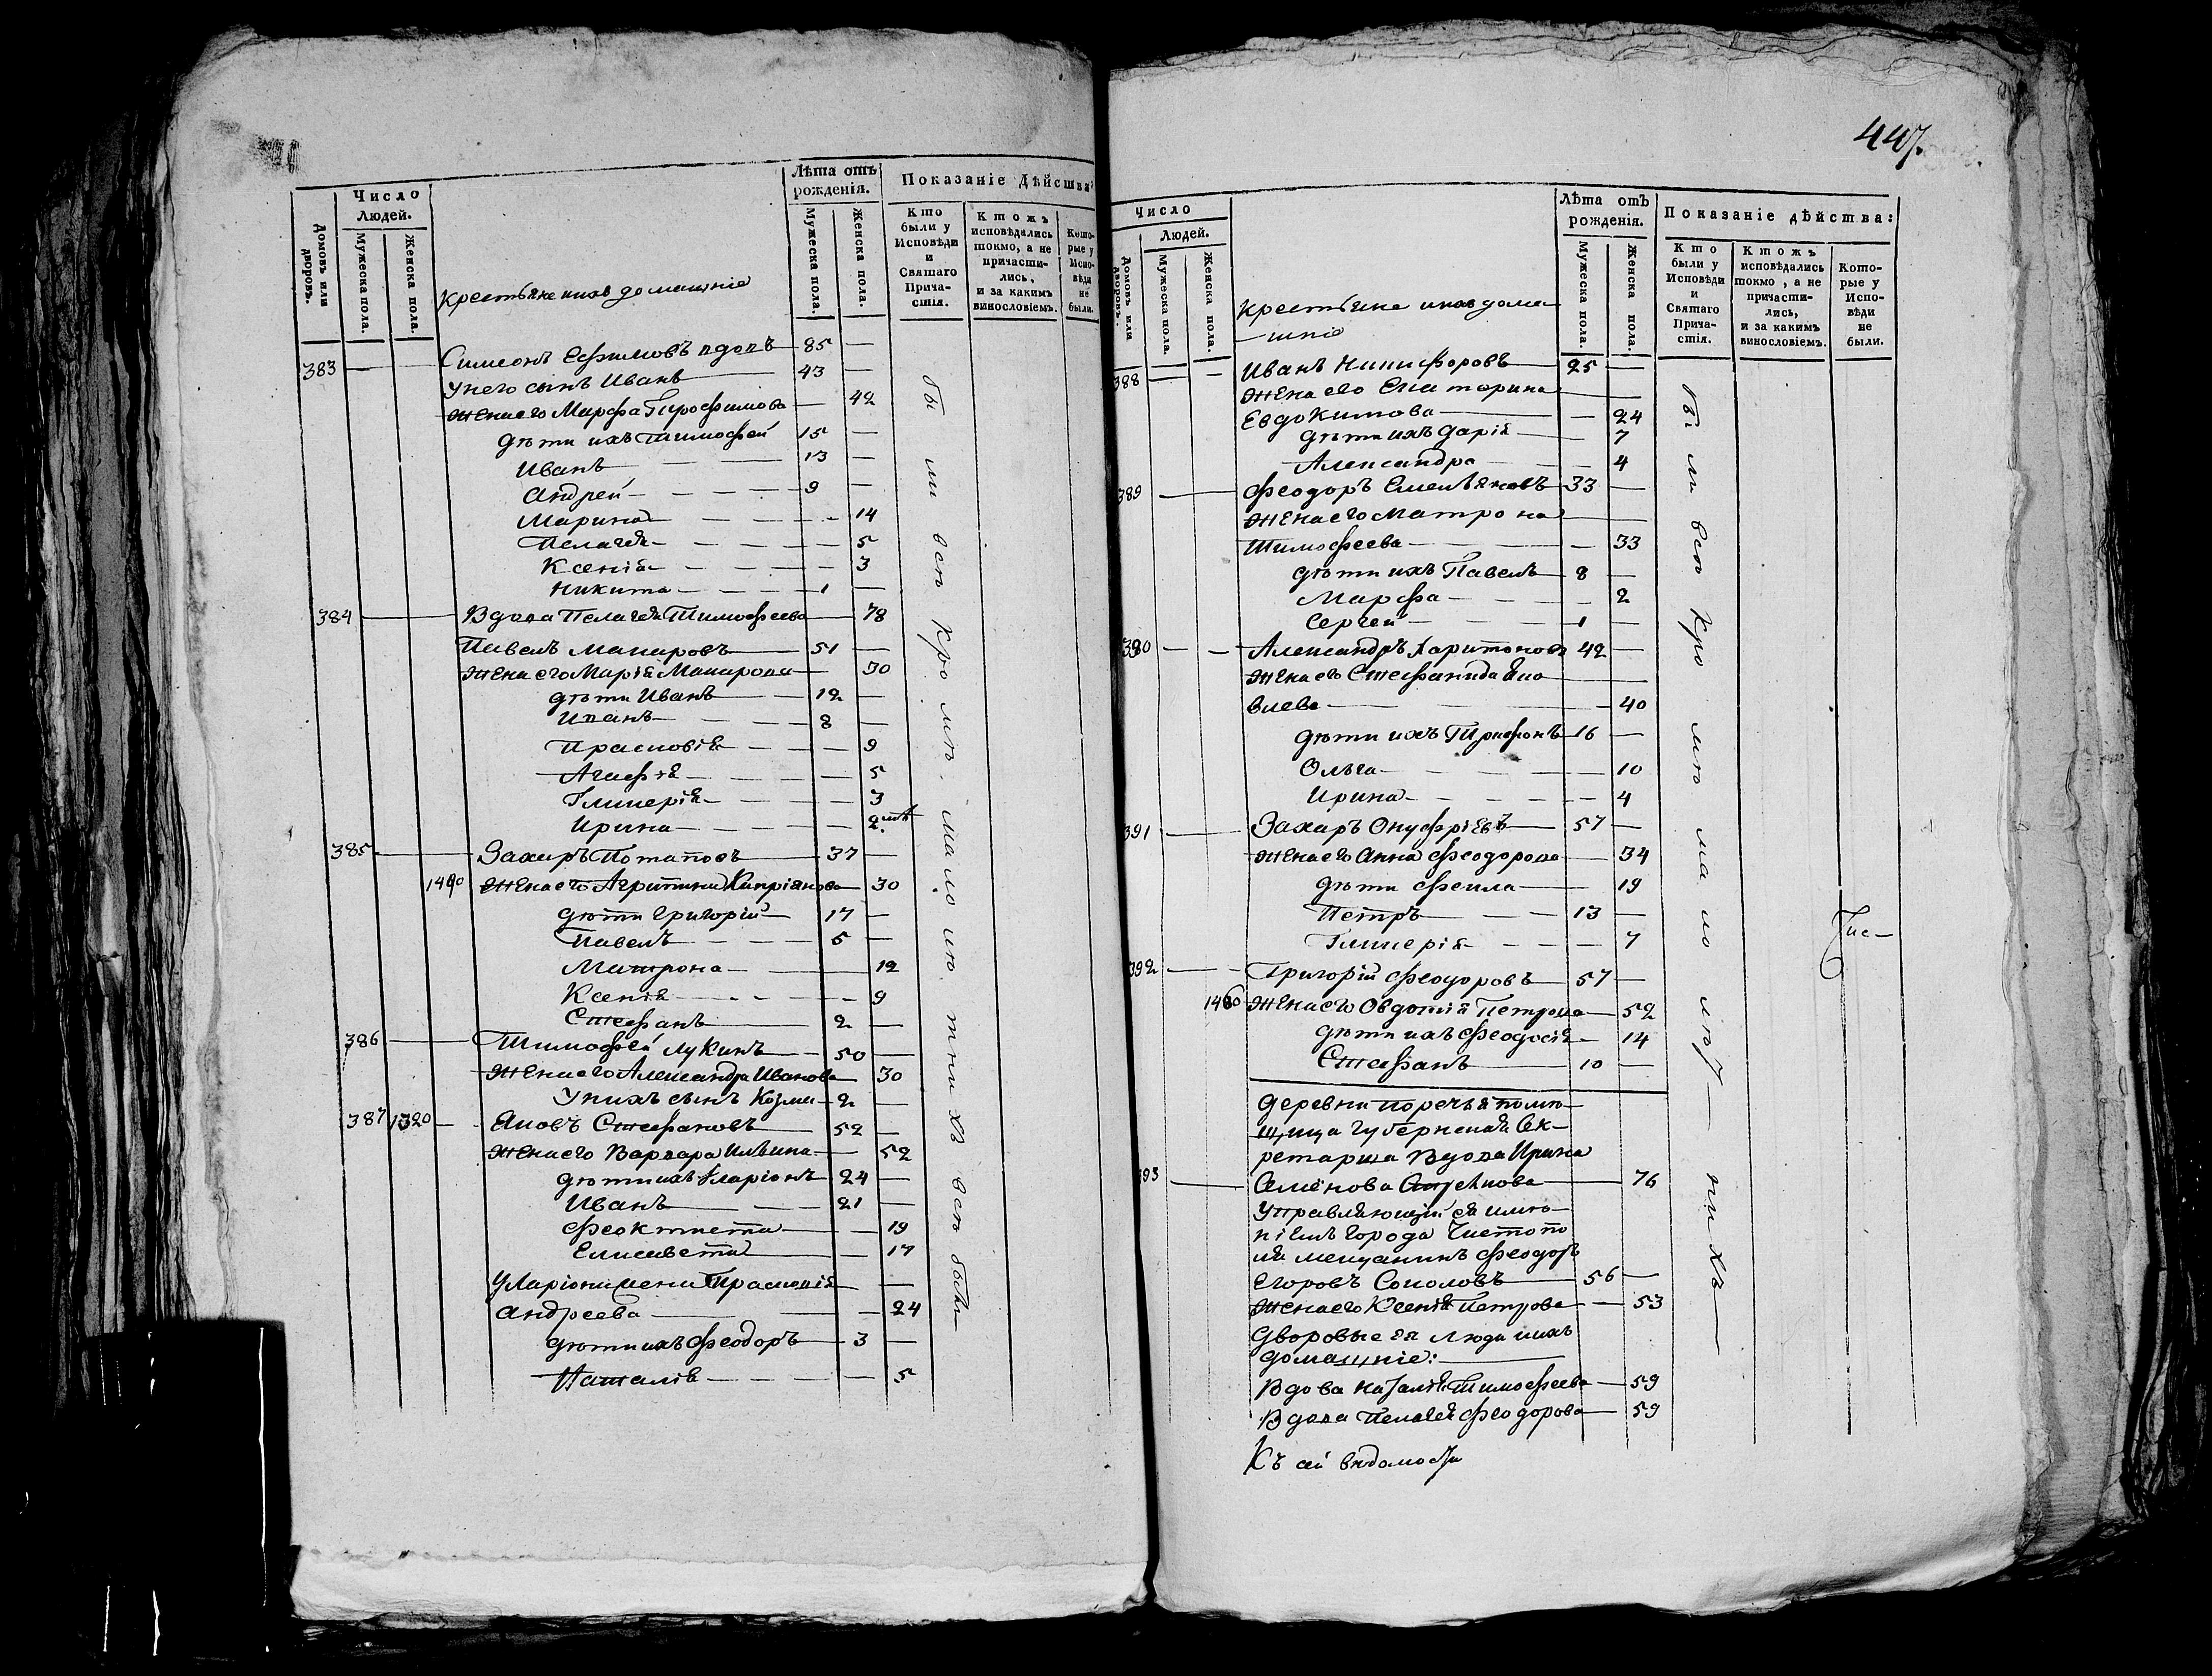 Число
Людей.
Домовъ или дворовъ.
Мужеска пола.
Женска пола.
Лѣта отъ рожденія.
Мужеска пола.
Женска пола.
Показаніе Дѣйства
Кто были у Исповѣди и Святаго Причастія.
Ктожъ исповѣдались токмо, а не причастились, и за какимъ винословіемъ.
Которые у Исповѣди не были.
крестьяне ихъ домашніе
383 Симеонъ Ефимовъ вдовъ 85
У него сынъ Иванъ 43
жена его Марфа Трофимова 42
дѣти ихъ Тимофей 15
Иванъ 13
Андрей 9
Марина 14
Пелагея 5
Ксенія 3
Никита 1
384 Вдова Пелагея Тимофеева 78
Павелъ Макаровъ 51
жена его Марія Макарова 30
дѣти Иванъ 12
Иванъ 8
Прасковія 9
Агафія 5
Гликерія 3
Ирина 2
385 Захаръ Потаповъ 37
1490 жена его Агрипина Кипріянова 30
дѣти Григорій 17
Павелъ 5
Матрона 12
Ксенія 9
Стефанъ 2
386 Тимофей Лукинъ 50
жена его Александра Иванова 30
У нихъ сынъ Козма 2
387 1320 Яковъ Стефановъ 52
жена его Варвара Ильина 52
дѣти ихъ Іларіонъ 24
Иванъ 21
Феоктиста 19
Елисавета 17
У Ларіона жена Прасковія
Андреева 24
дѣти ихъ Феодоръ 3
Наталія 5
были всѣ кромѣ малолю тнихъ всѣ были
447.
Число
Людей.
Домовъ или дворовъ.
Мужеска пола.
Женска пола.
Лѣта отъ рожденія.
Мужеска пола.
Женска пола.
Показаніе дѣйства:
Кто были у Исповѣди и Святаго Причастія.
Ктожъ исповѣдались токмо, а не причастились, и за какимъ винословіемъ.
Которые у Исповѣди не были.
крестьяне ихъ дома-
-шніе
388 Иванъ Никифоровъ 25
жена его Екатерина
Евдокимова 24
дѣти ихъ Дарія 7
Александра 4
389 Феодоръ Емельяновъ 33
жена его Матрона
Тимофеева 33
дѣти ихъ Павелъ 8
Марфа 2
Сергей 1
390 Александръ Харитоновъ 42
жена его Стефанида Яко
влева 40
дѣти ихъ Трифонъ 16
Ольга 10
Ирина 4
391 Захаръ Онуфріевъ 57
жена его Анна Феодорова 34
дѣти Фекла 19
Петръ 13
Гликерія 7
392 Григорій Феодоровъ 57
1480 жена его Овдотія Петрова 52
дѣти ихъ Феодосія 14
Стефанъ 10
Деревни Поречья помѣ-
щица Губернская Сек-
ретарша Вдова Ирина
393 Семенова 76
Управляющій ея имѣ-
ніемъ города Чистопо
ля мещанинъ Феодоръ
Егоровъ Соколовъ 56
жена его Ксенія Петрова 53
Дворовые ея люди и ихъ
домашніе:
Вдова Наталія Тимофеева 59
Вдова Пелагея Феодорова 59
Къ сей вѣдомости
были всѣ кромѣ малолѣт — нихъ